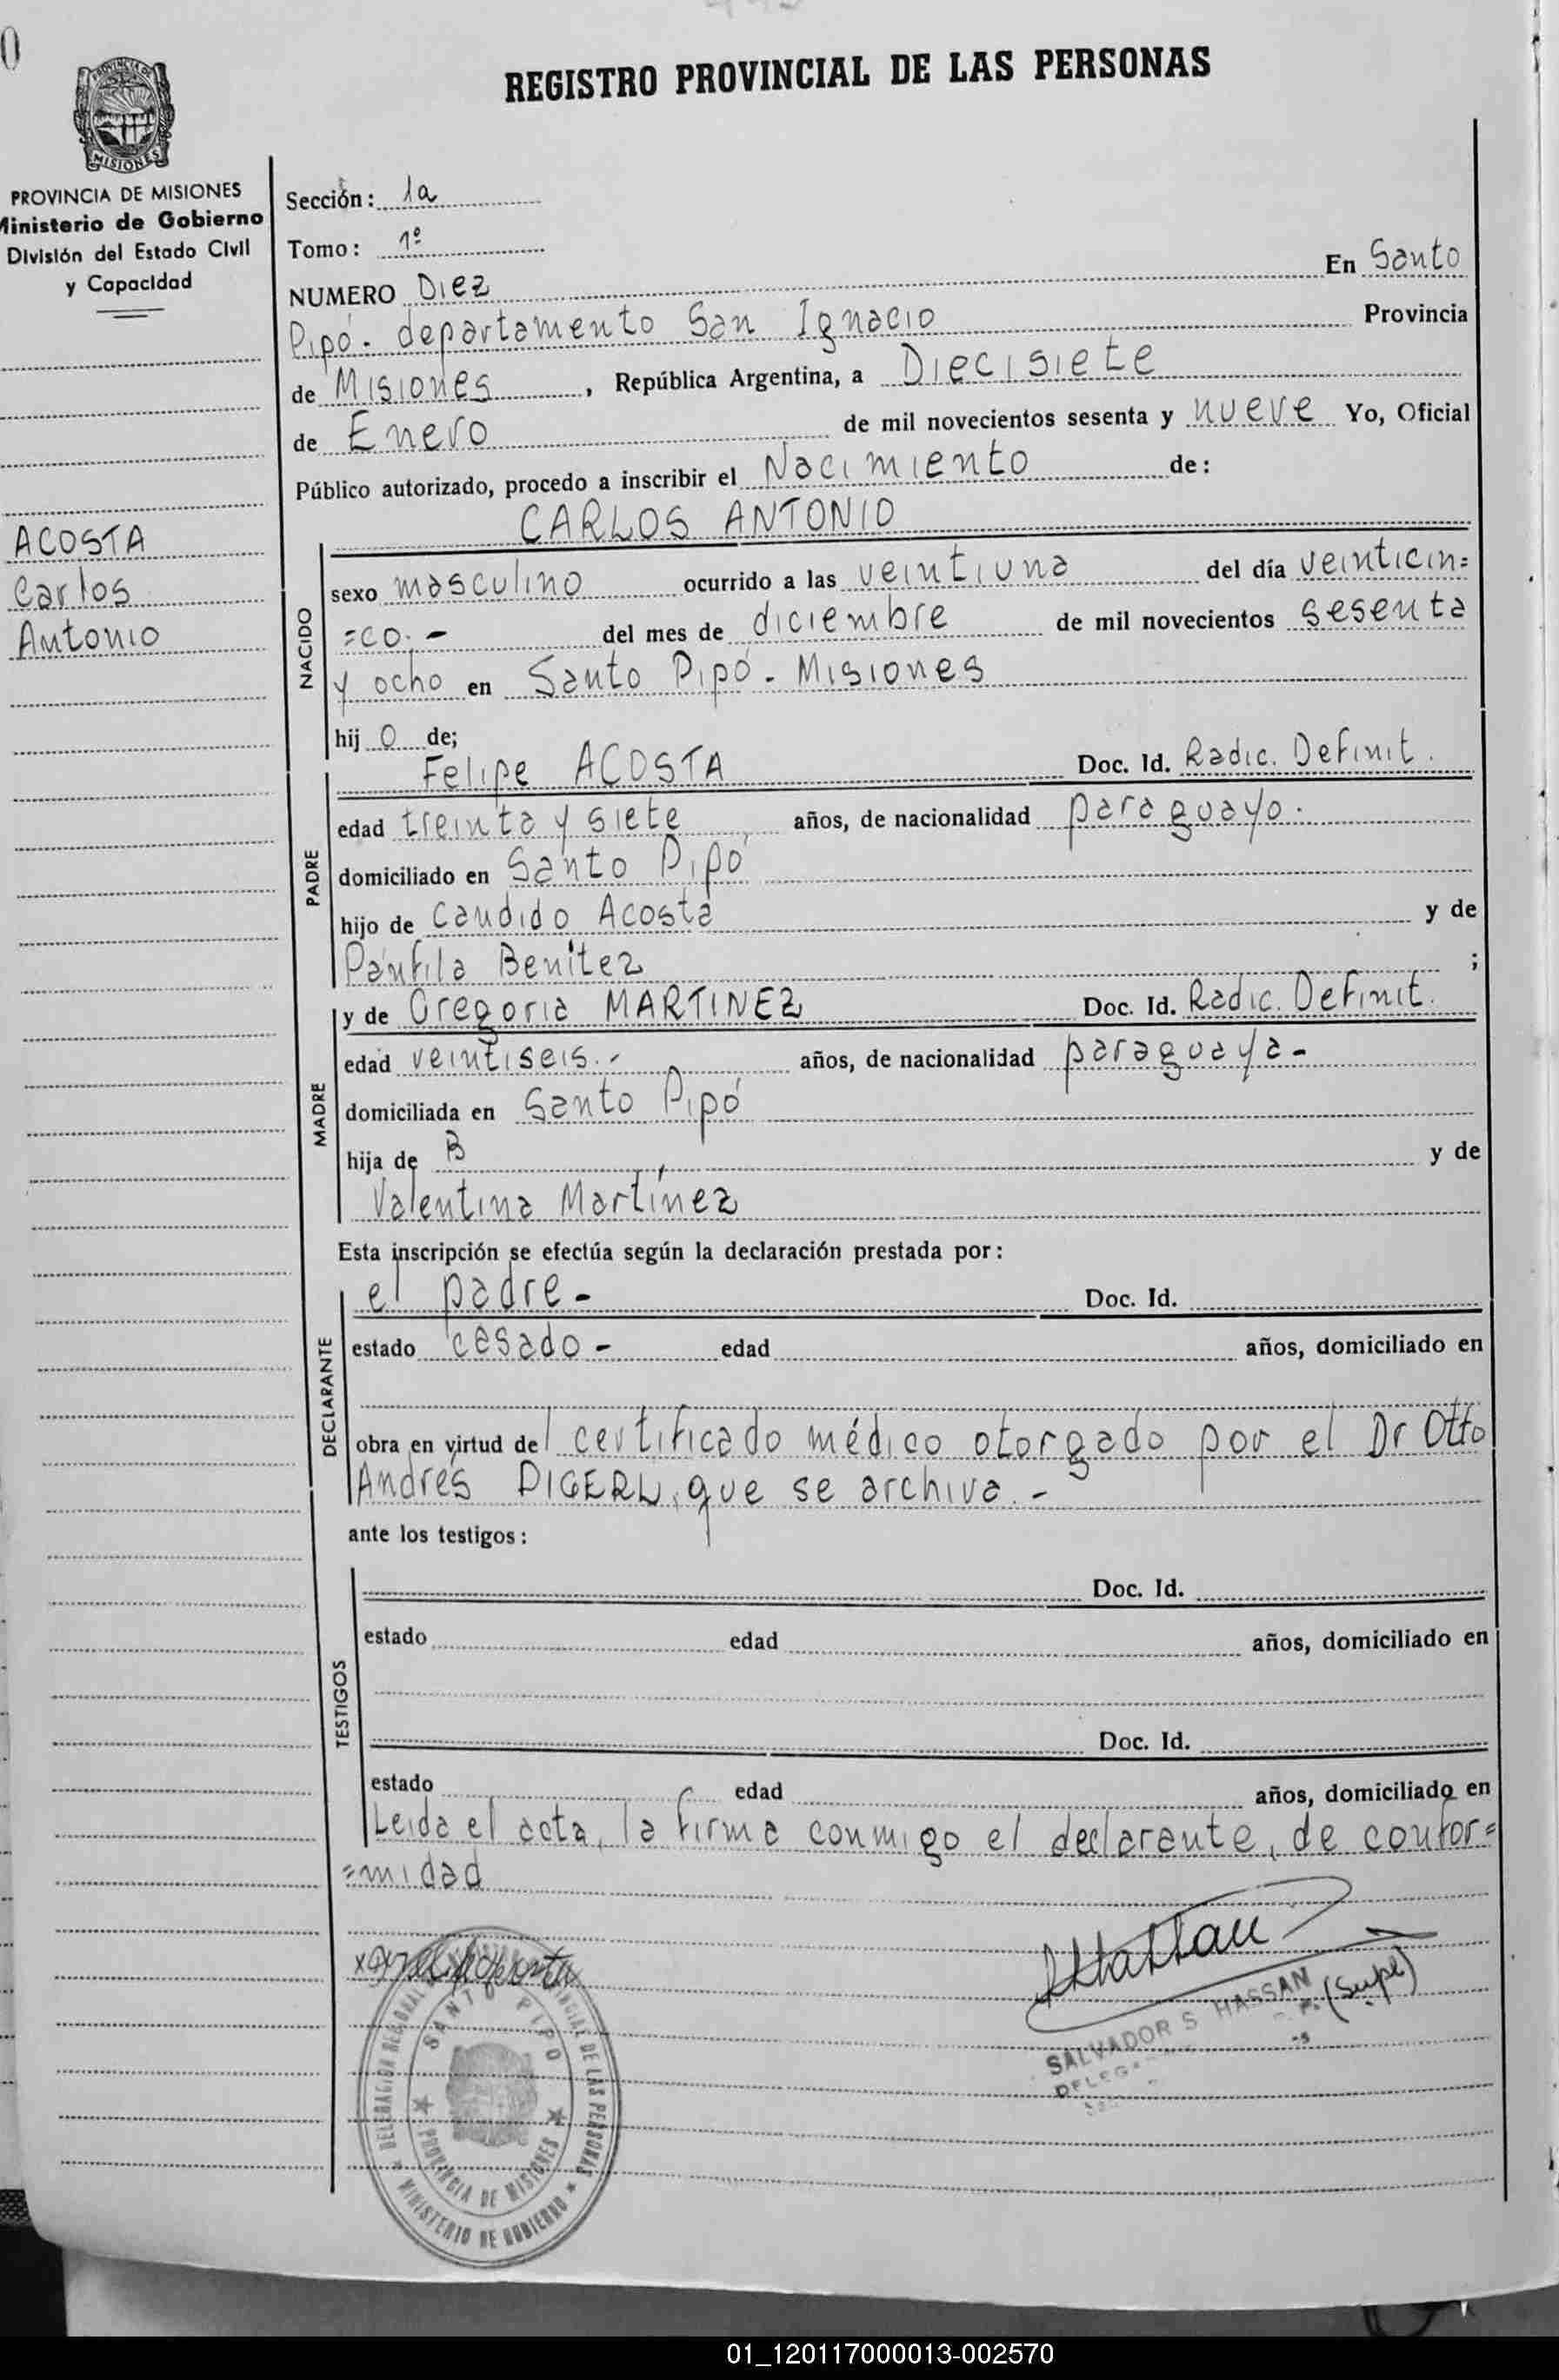 REGISTRO PROVINCIAL DE LAS PERSONAS
MISIONES
PROVINCIA DE MISIONES
Ministerio de Gobierno
División del Estado Civil
y Capacidad
ACOSTA
Carlos
Antonio
Sección: 1a
Tomo: 1º
NUMERO Diez En Santo
Pipó. departamento San Ignacio Provincia
de Misiones, República Argentina, a Diecisiete
de Enero de mil novecientos sesenta y nueve Yo, Oficial
Público autorizado, procedo a inscribir el Nacimiento de:
CARLOS ANTONIO
NACIDO
sexo masculino ocurrido a las veintiuna del día veinticin=
=co.- del mes de diciembre de mil novecientos sesenta
y ocho en Santo Pipó. Misiones
hijo de;
PADRE
Felipe ACOSTA Doc. Id. Radic. Definit.
edad treinta y siete años, de nacionalidad paraguayo.
domiciliado en Santo Pipó
hijo de Candido Acosta y de
Panfila Benitez ;
MADRE
y de Gregoria MARTINEZ Doc. Id. Radic. Definit.
edad veintiseis.- años, de nacionalidad paraguaya-
domiciliada en Santo Pipó
hija de B y de
Valentina Martínez
Esta inscripción se efectúa según la declaración prestada por:
DECLARANTE
el padre- Doc. Id.
estado casado- edad años, domiciliado en
obra en virtud del certificado médico otorgado por el Dr Otto
Andrés DIGERL, que se archiva.-
ante los testigos:
TESTIGOS
Doc. Id.
estado edad años, domiciliado en
Doc. Id.
estado edad años, domiciliado en
Leida el acta, la firma conmigo el declarante, de confor=
=midad
SALVADOR S. HASSAN
(Supl)
DELEGACION REGIONAL DE LAS PERSONAS
SANTO PIPO
PROVINCIA DE MISIONES
MINISTERIO DE GOBIERNO
01_120117000013-002570